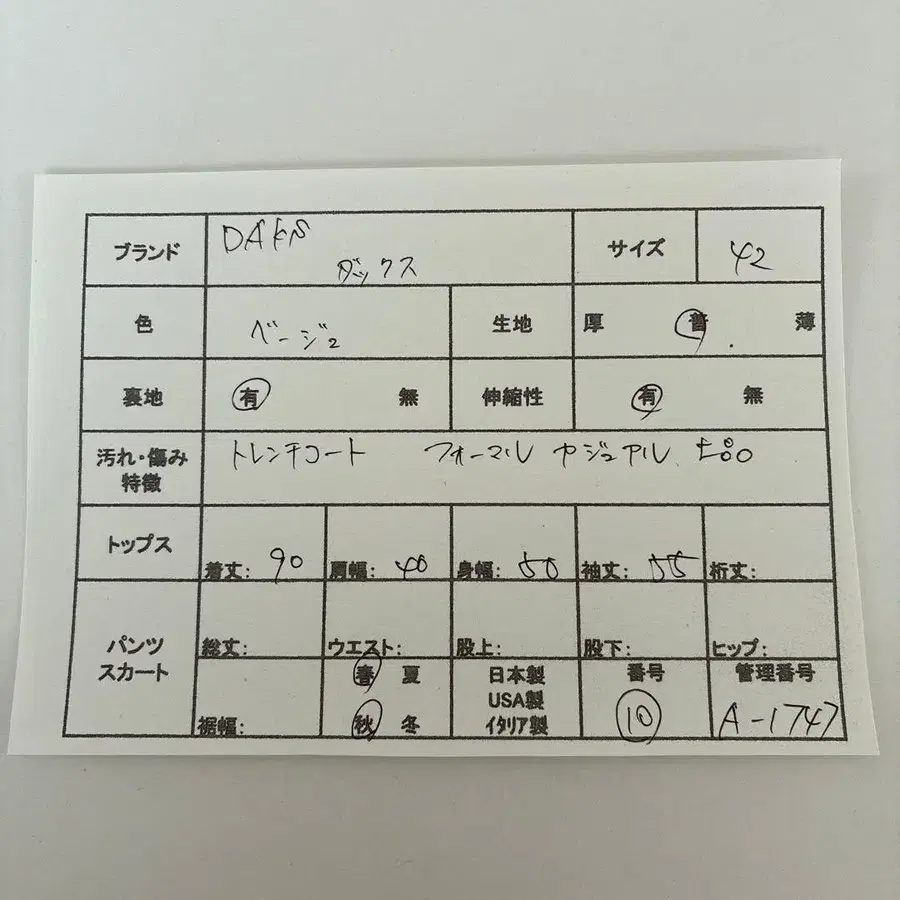 ブランド DAKS サイズ 42
ダックス
色 ベージュ 生地 厚 普 薄
裏地 有 無 伸縮性 有 無
汚れ・傷み トレンチコート フォーマル カジュアル
特徴
トップス 着丈: 90 肩幅: 40 身幅: 50 袖丈: 55 裄丈:
パンツ 総丈: ウエスト: 股上: 股下: ヒップ:
スカート 春 夏 日本製 番号 管理番号
USA製
裾幅: 秋 冬 イタリア製 10 A-1747